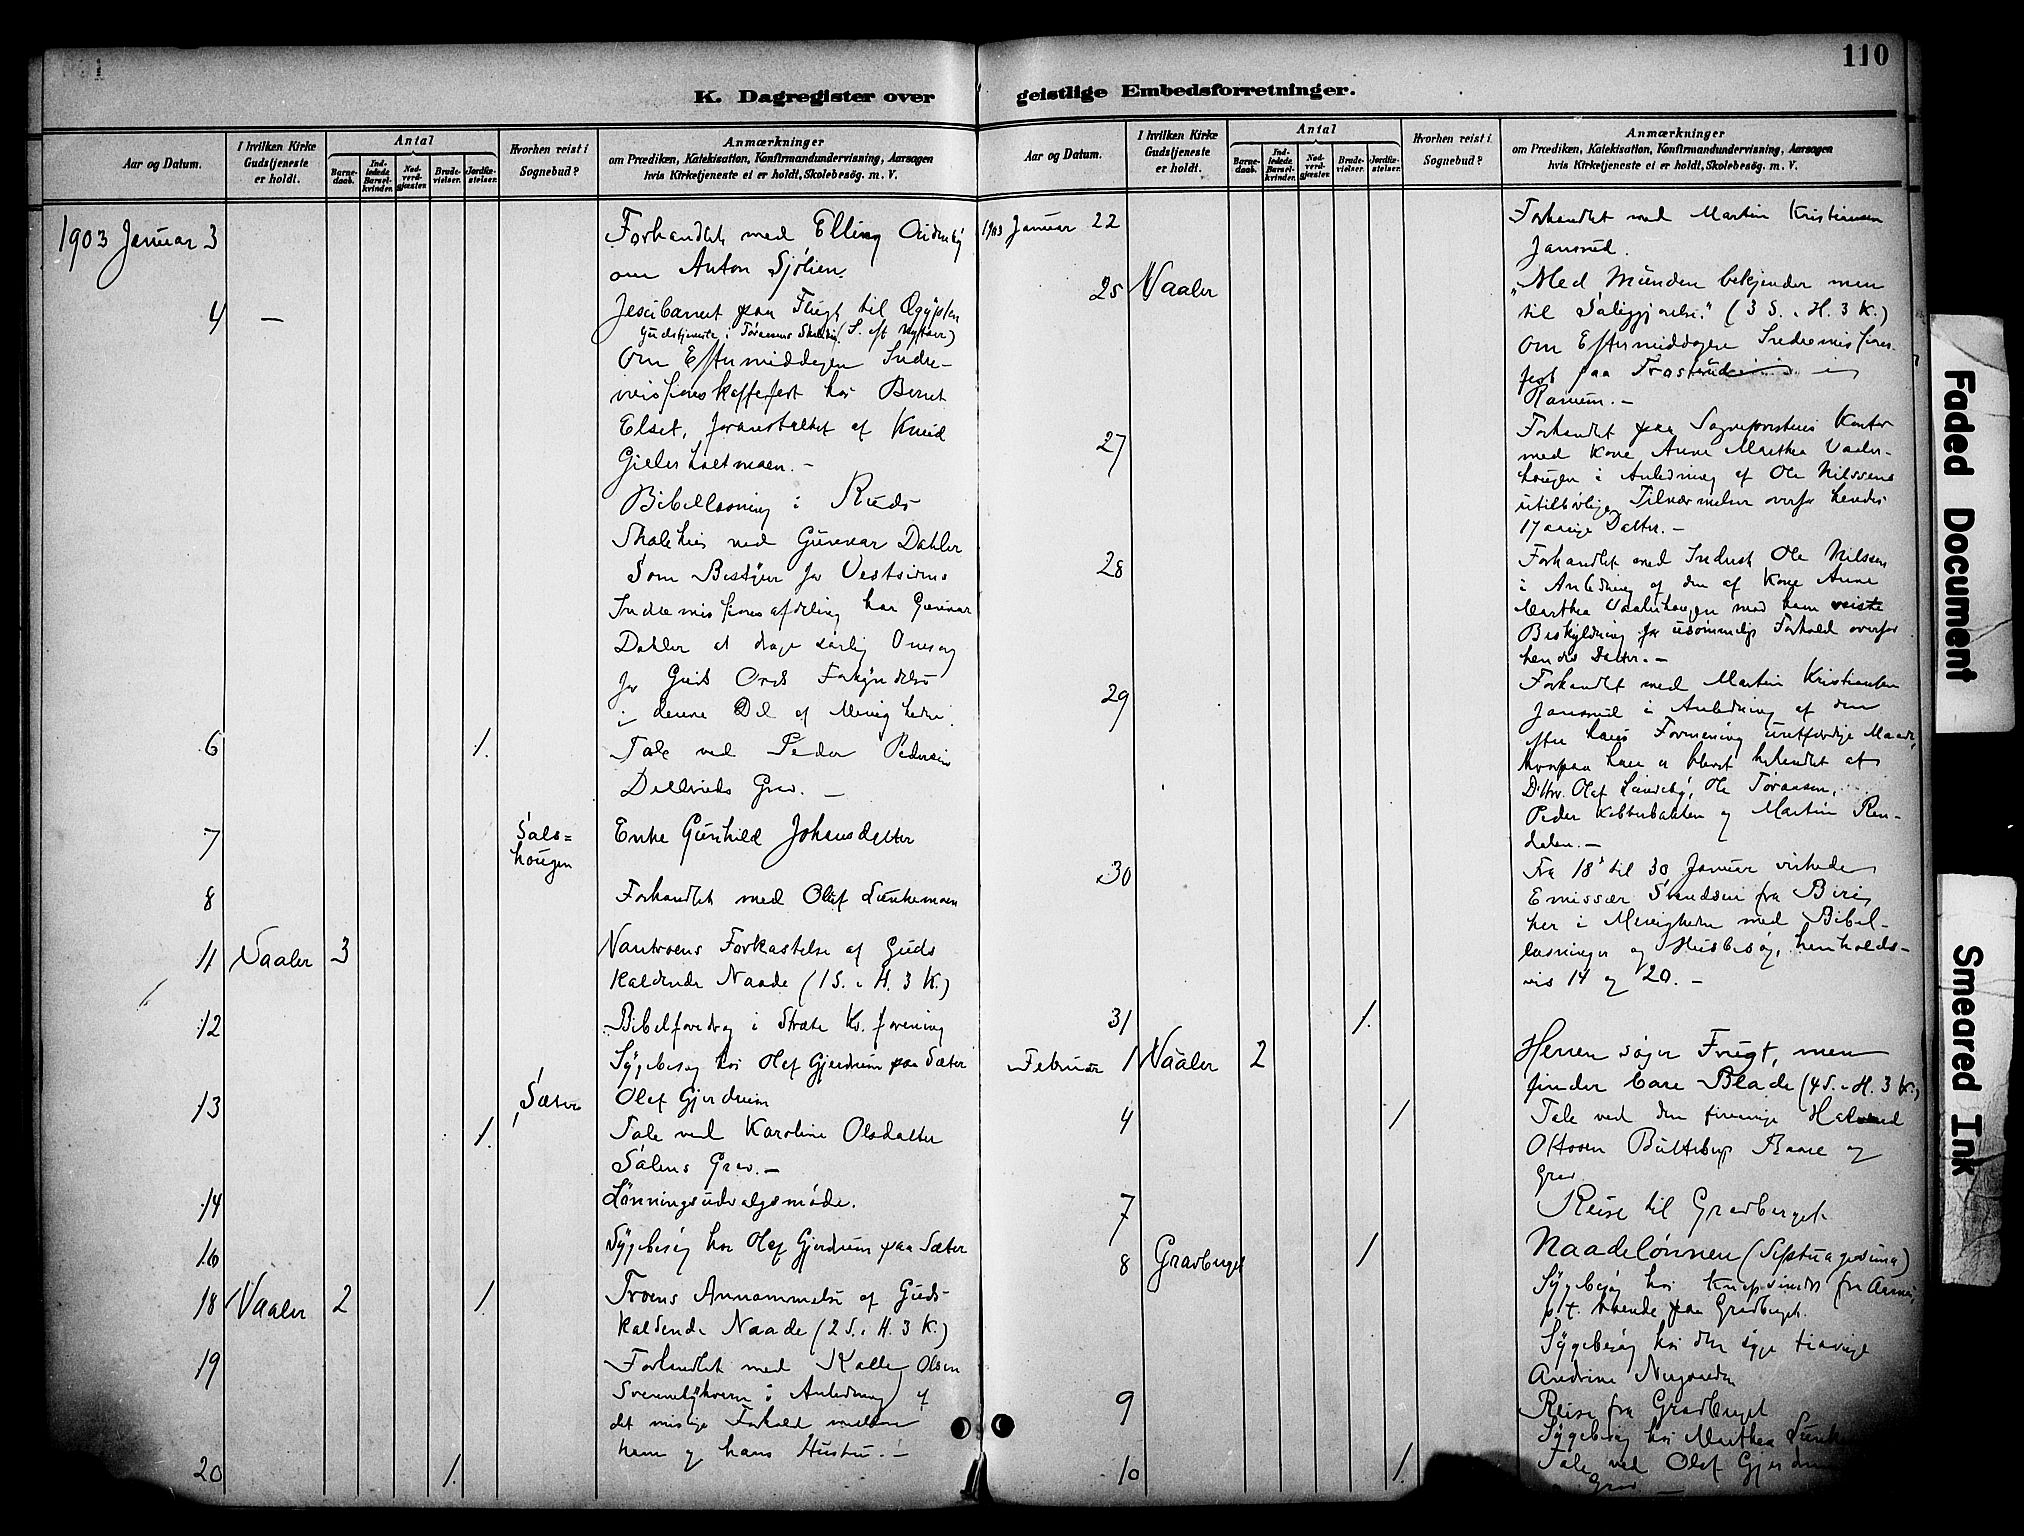 110
K. Dagregister over geistlige Embedsforretninger.
Aar og Datum.
I hvilken Kirke Gudstjeneste er holdt.
Antal
Barnedaab.
Indledede Barselkvinder.
Nadverdgjæster.
Brudevielser.
Jordfæstelser.
Hvorhen reist i Sognebud?
Anmærkninger
om Prædiken, Katekisation, Konfirmandundervisning, Aarsagen
hvis Kirketjeneste ei er holdt, Skolebesøg. m. V.
1903 Januar 3 Forhandlet med Elling
om Anton Sjølien.
4 — Jesubarnet paa Flugt til Ægypten
Gudstjeneste i Skolehus (S. eft Nytaar)
Om Eftermiddagen Indre-
missionskaffefest hos Bernt
Elset, foranstaltet af Knud
Gjelsholtmoen. —
Bibellæsning i Ruds
Skolehus ved Gunnar Dahler
Som Bestyrer for Vestsidens
Indremissionsafdeling har Gunnar
Dahler at drage særlig Omsorg
for Guds Ords Forkyndelse
i denne Del af Menigheden.
6 1. Tale ved Peder Pedersen
Grav. —
7 Sals=
hougen Enke Gunhild Johansdatter
8 Forhandlet med Olaf Lunkemoen
11 Vaaler 3 Vantroens Forkastelse af Guds
kaldende Naade (1 S. i H. 3 K.)
12 Bibelforedrag i Stræte Kv. forening
Sygebesøg hos Olaf Gjerdrum paa Sæter
13 Sæter Olaf Gjerdrum
1. Tale ved Karoline Olsdatter
Sølens Grav. —
14 Lønningsudvalgsmøde.
16 Sygebesøg hos Olaf Gjerdrum paa Sæter
18 Vaaler 2 1. Troens Annammelse af Guds
kaldende Naade (2 S. i H. 3 K.)
19 Forhandlet med Kalle Olsen
i Anledning af
det mislige Forhold mellem
ham og hans Hustru. —
20 1.
Aar og Datum.
I hvilken Kirke Gudstjeneste er holdt.
Antal
Barnedaab.
Indledede Barselkvinder.
Nadverdgjæster.
Brudevielser.
Jordfæstelser.
Hvorhen reist i Sognebud?
Anmærkninger
om Prædiken, Katekisation, Konfirmandundervisning, Aarsagen
hvis Kirketjeneste ei er holdt, Skolebesøg. m. V.
1903 Januar 22 Forhandlet med Martin Kristiansen
Jansrud.
25 Vaaler „Med Munden bekjender man
til Saliggjørelse." (3 S. i H. 3 K.)
Om Eftermiddagen Indremissions-
fest paa
27 Forhandlet paa Sogneprestens Kontor
med Kone Anne Marthea Vaaler-
hougen i Anledning af Ole Nilssens
utilbørlige Tilnærmelser overfor hendes
17 aarige Datter. —
28 Forhandlet med Inderst Ole Nilssen
i Anledning af den af Kone Anne
Marthea Vaalerhougen mod ham reiste
Beskyldning for usømmelig Forhold overfor
hendes Datter. —
29 Forhandlet med Martin Kristiansen
Jansrud i Anledning af den
efter hans Formening uretfærdige Maade,
hvorpaa han er blevet behandlet af
D'Hrr. Olaf Lundeby, Ole Tøraasen,
Peder Kobberbakken og Martin Ren-
dalen. —
30 Fra 18' til 30 Januar virkede
Emissær Svendsen fra Biri
her i Menigheden med Bibel-
læsninger og Husbesøg, henholds-
vis 14 og 20. —
31 1.
Februar 1 Vaaler 2 Herren søger Frugt, men
finder bare Blade (4 S. i H. 3 K.)
4 1 Tale ved den Halvard
Ottosen Baare og
Grav
7 Reise til Gravberget
8 Gravberget 1 Naadelønnen (Septuagesima)
Sygebesøg hos fra
p. t. boende paa Gravberget.
Sygebesøg hos den syge tiaarige
Andrine
9 Reise fra Gravberget
Sygebesøg hos Marthea
10 1. Tale ved Olaf
Grav —
Faded Document
Smeared Ink